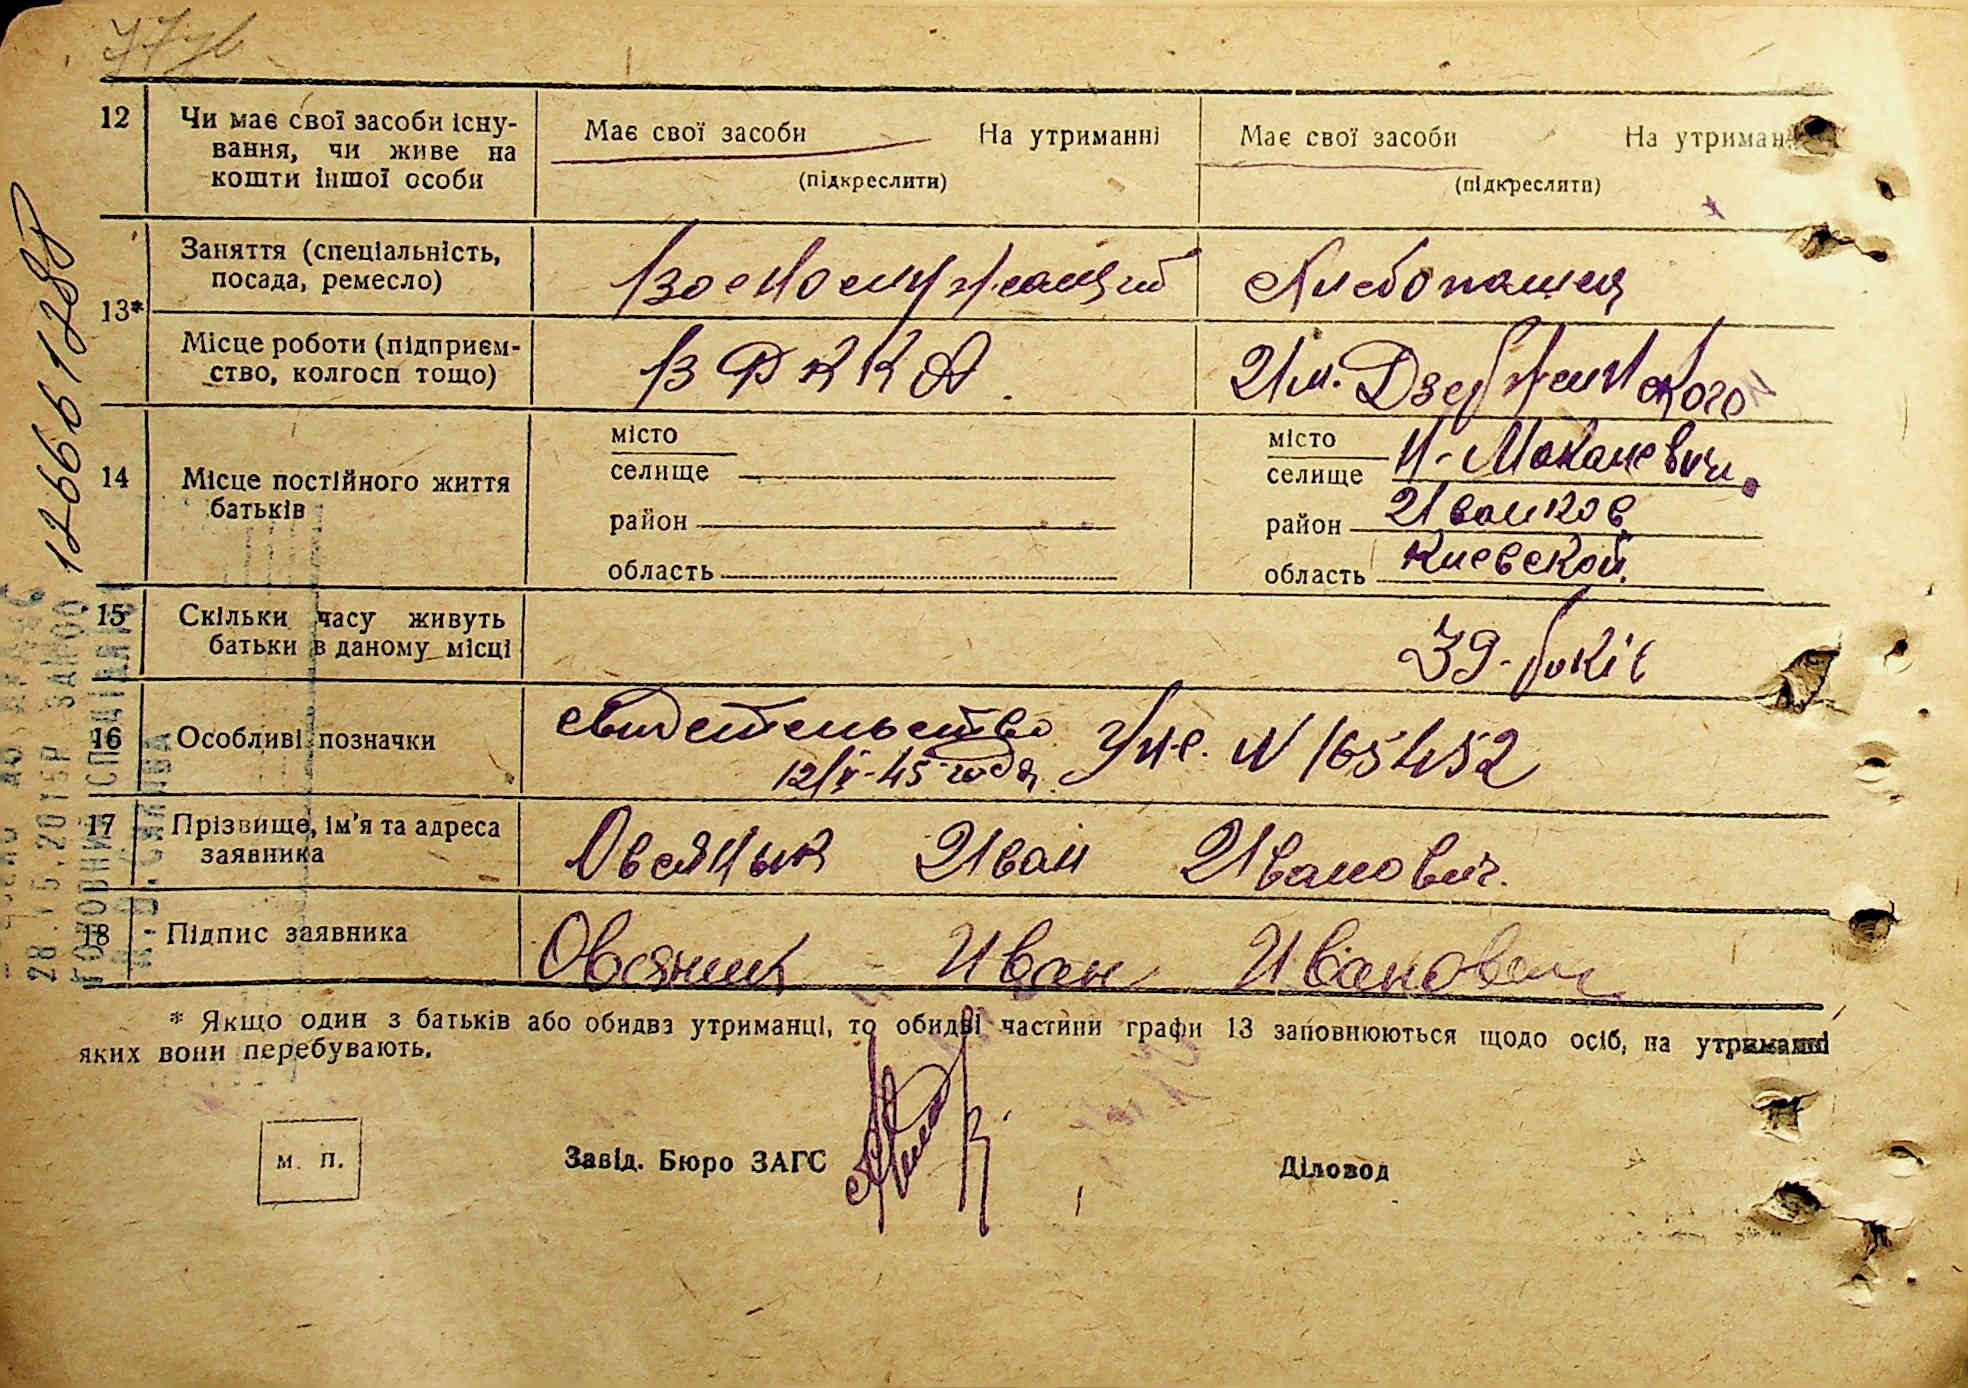 12 Чи має свої засоби існу-
вання, чи живе на
кошти іншої особи
Має свої засоби На утриманні
(підкреслити)
Має свої засоби На утриман
(підкреслити)
13*
Заняття (спеціальність,
посада, ремесло)
Военослужащий
Хлебопашец
Місце роботи (підприєм-
ство, колгосп тощо)
В РККА.
Им. Дзержинского
14 Місце постійного життя
батьків
місто
селище
район
область
місто
селище
И-Макалевичи
район Иванков
область Киевской.
15 Скільки часу живуть
батьки в даному місці
39-років
16 Особливі позначки
свидетельство
12/V-45 года. Уже. N 165452
17 Прізвище, ім'я та адреса
заявника
Овсяnык Иван Иванович.
18 Підпис заявника
Овсяник - Иван Иванович
* Якщо один з батьків або обидвз утриманці, то обидві частини графи 13 заповнюються щодо осіб, на утриманні
яких вони перебувають.
м. п.
Завід. Бюро ЗАГС
Діловод
12666 1288